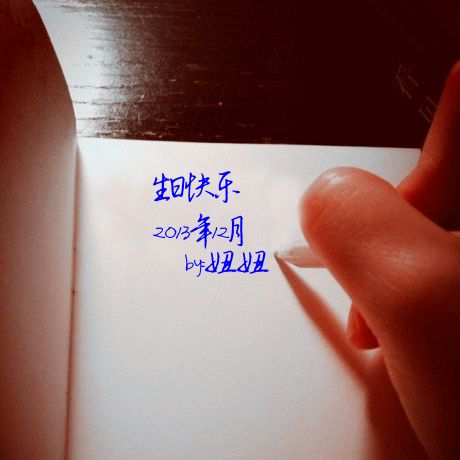 生日快乐
2013年12月
by:妞妞